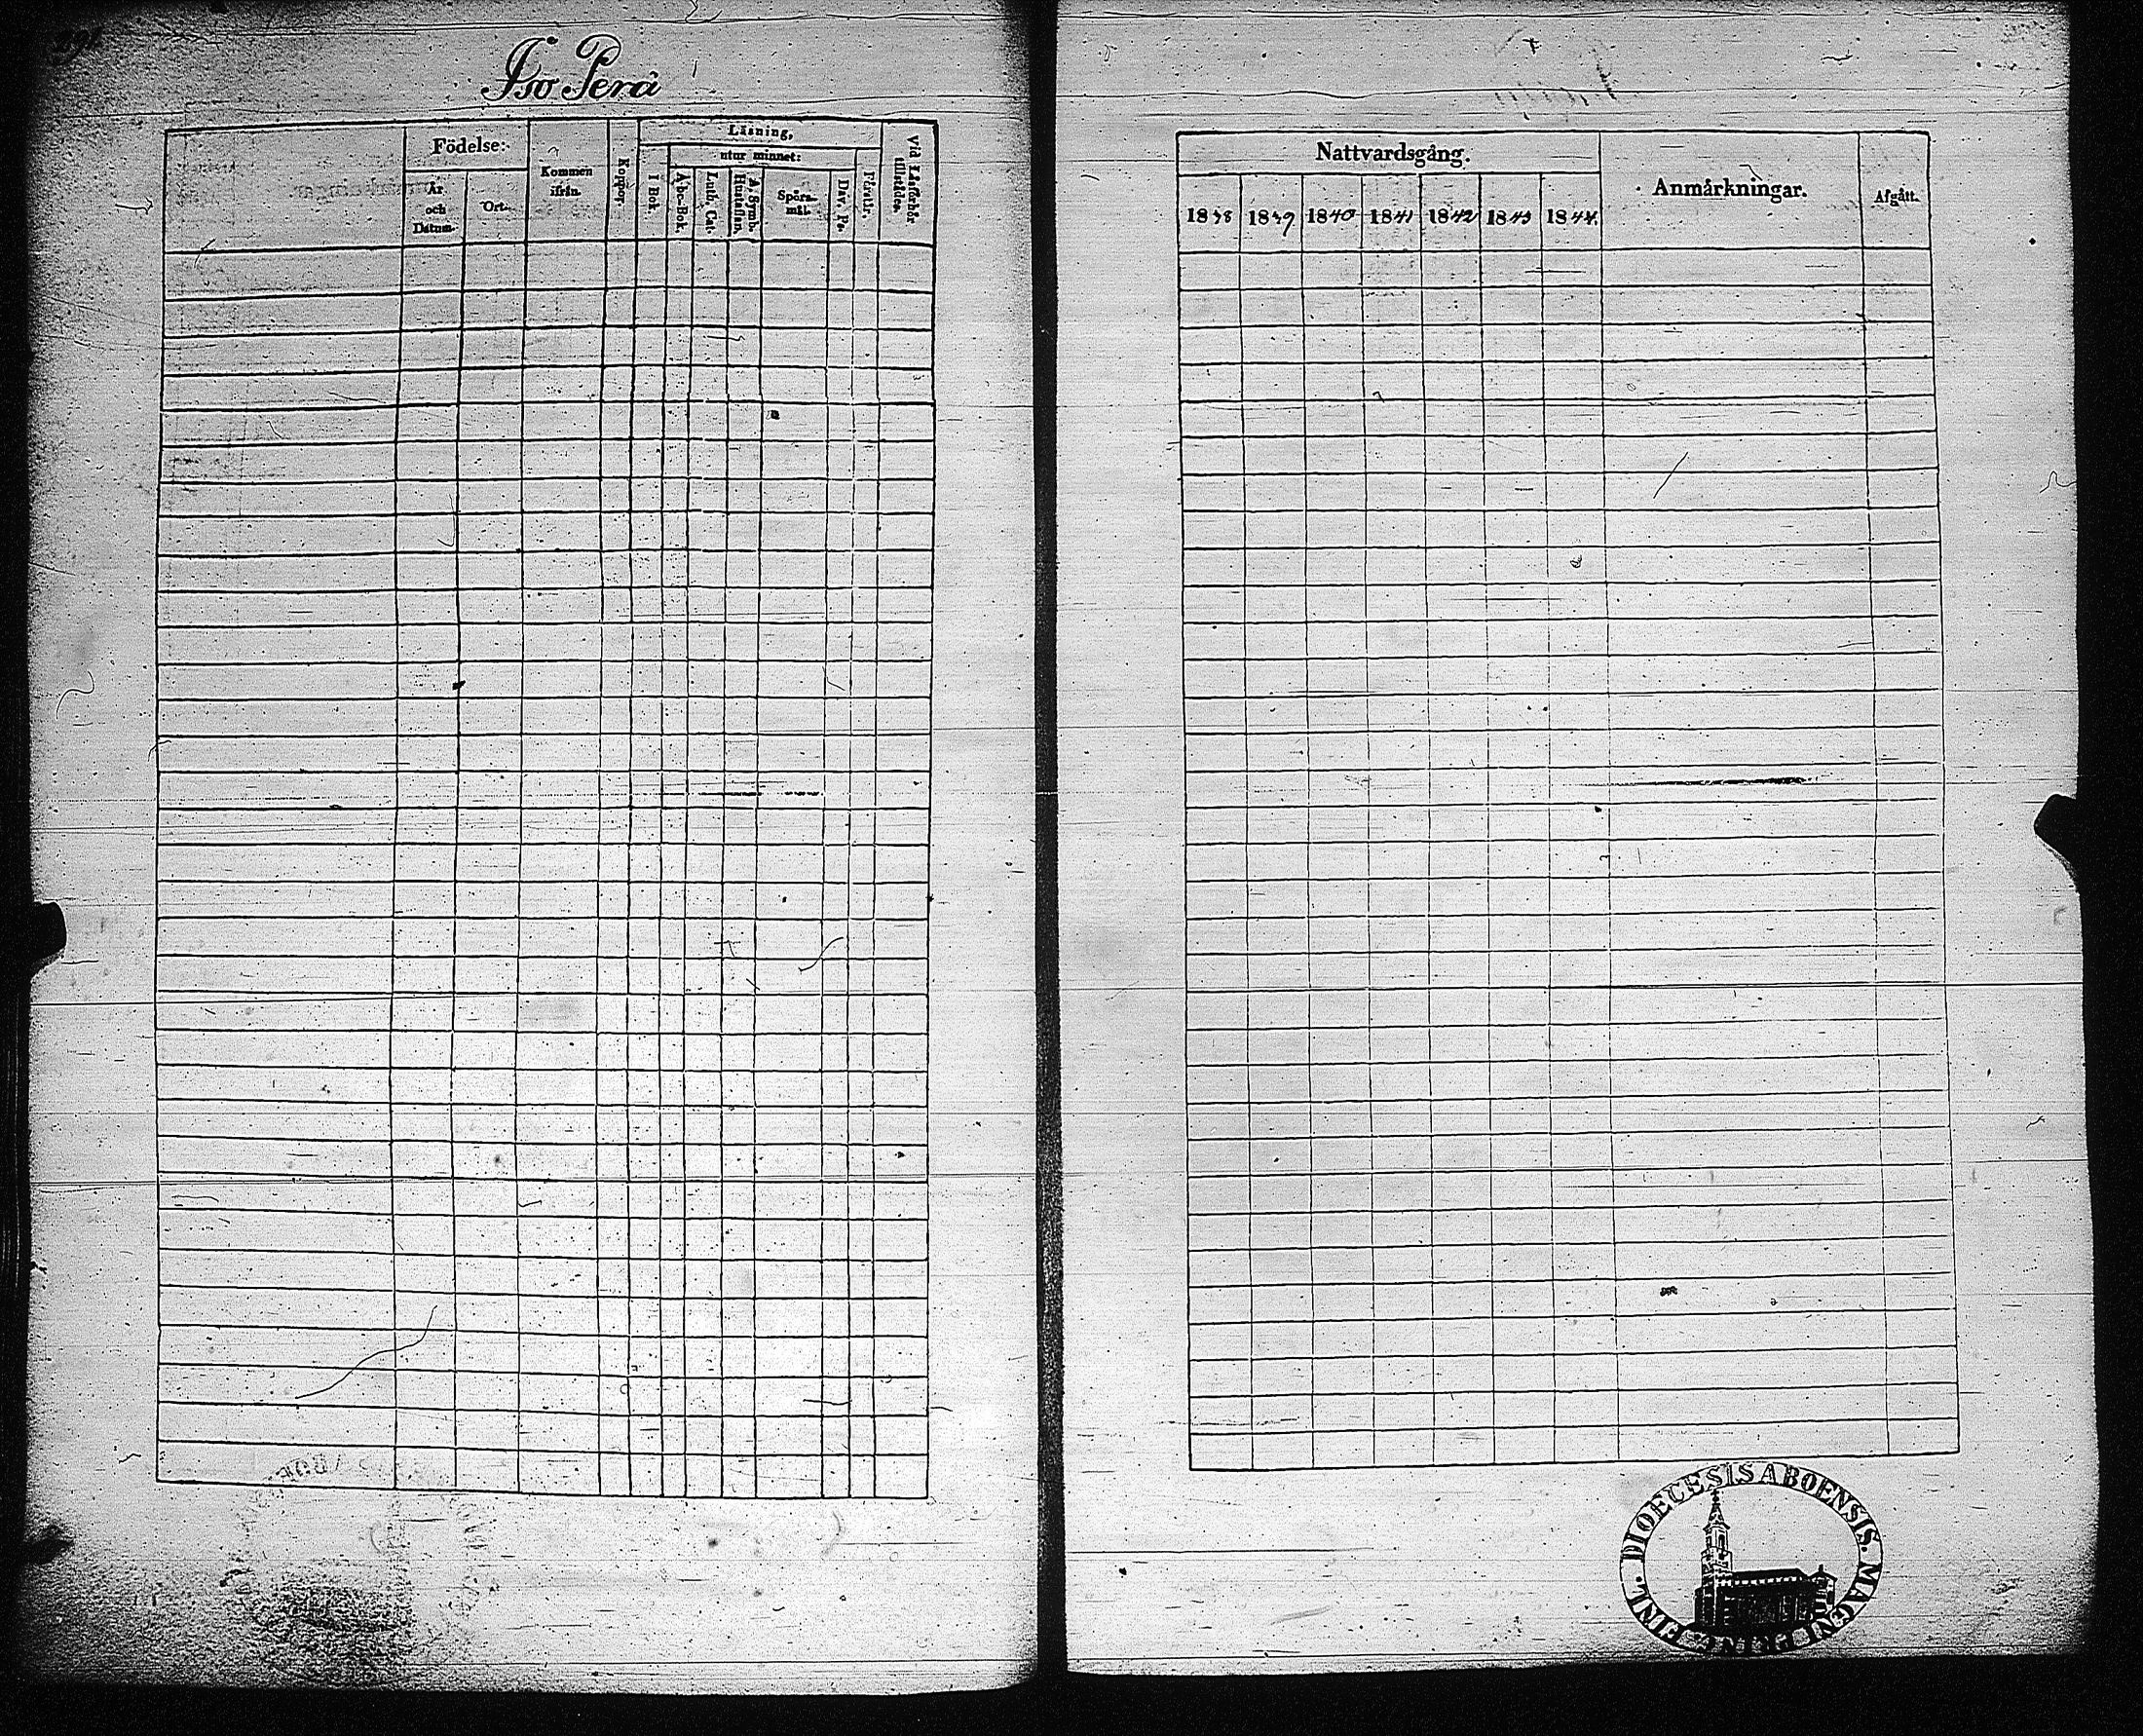 Iso Perä
Födelse:
År och Datum.
Ort.
Kommen ifrån.
Koppor.
Läsning,
I Bok.
utur minnet:
A-be-Bok.
Luth. Cat.
Hustaflan. A. Symb.
Spörs-mål.
Dav. Ps.
Förståt.
Vid Läseförhör tillstädes.
Nattvardsgång.
1838 1839 1840 1841 1842 1843 1844.
Anmärkningar.
Afgått.
DIOECESIS ABOENSIS. MAGNI PRINC. FINL.